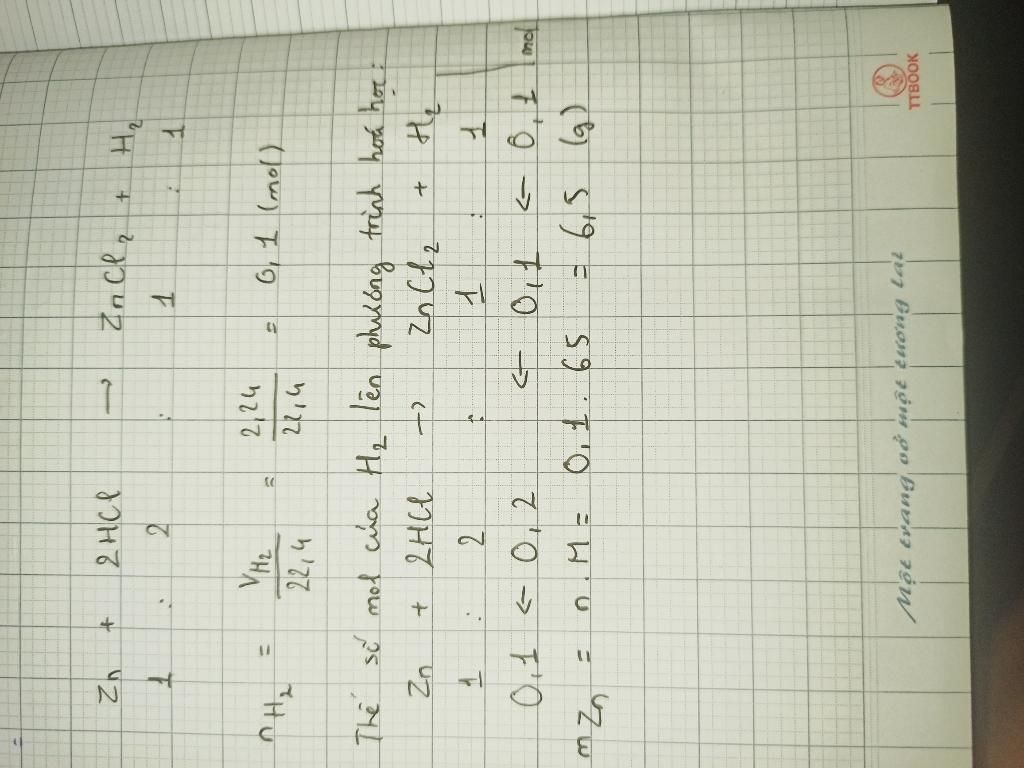 Zn + 2HCl → ZnCl₂ + H₂
1 : 2 : 1 : 1
nH₂ = VH₂/22,4 = 2,24/22,4 = 0,1 (mol)
Thế số mol của H₂ lên phương trình hoá học:
Zn + 2HCl → ZnCl₂ + H₂
1 : 2 : 1 : 1
0,1 ← 0,2 ← 0,1 ← 0,1 mol
mZn = n.M = 0,1.65 = 6,5 (g)
Một trang vở một tương lai
TTBOOK